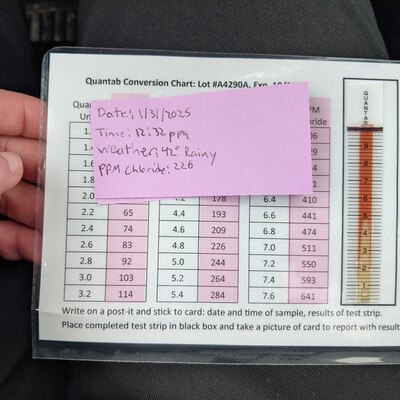 Quantab Conversion Chart: Lot #A4290A, Exp.
Date: 1/31/2025
Time: 12:32 pm
Weather: 42° Rainy
PPM Chloride: 226
Qua PM
Un oride
1. 06
1.4 29
1.6
1.8
2.0 178 6.4 410
2.2 65 4.4 193 6.6 441
2.4 74 4.6 209 6.8 474
2.6 83 4.8 226 7.0 511
2.8 92 5.0 244 7.2 550
3.0 103 5.2 264 7.4 593
3.2 114 5.4 284 7.6 641
QUANTAB
9
8
7
6
5
4
3
2
1
Write on a post-it and stick to card: date and time of sample, results of test strip.
Place completed test strip in black box and take a picture of card to report with result